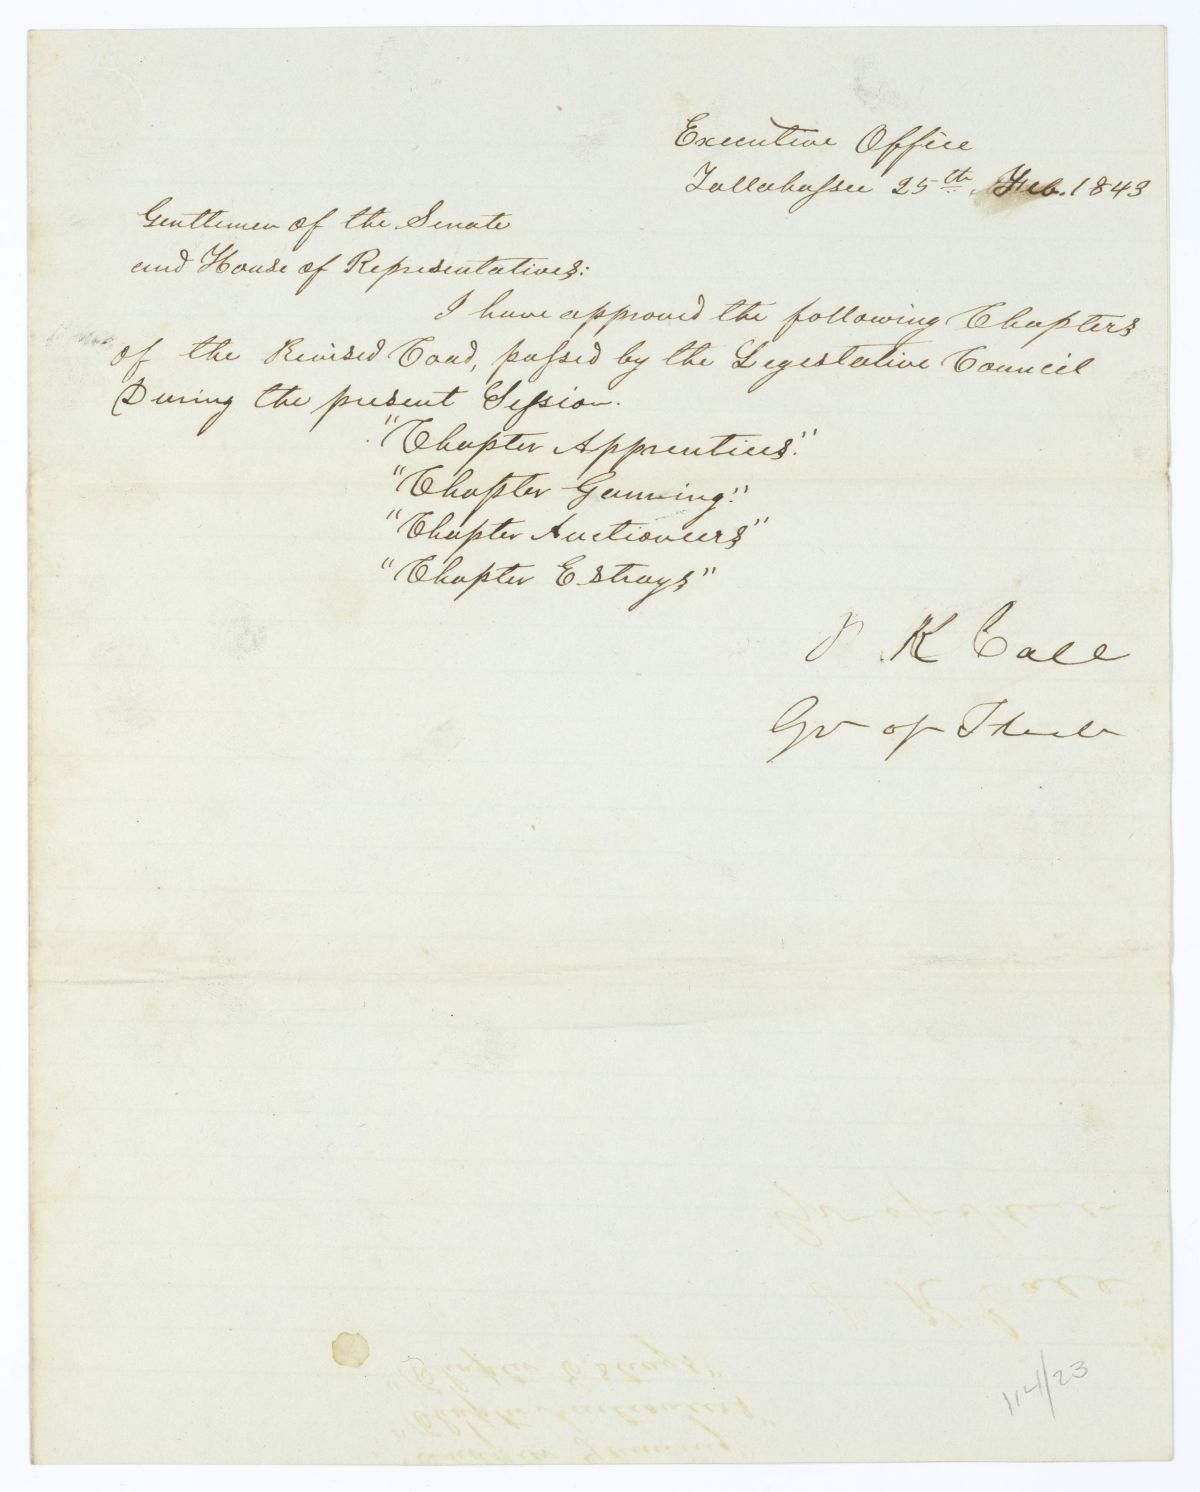 Executive Office
Tallahassee 25th. Feb. 1843
Gentlemen of the Senate
and House of Representatives:
I have approved the following Chapters
of the Revised Coad, passed by the Legeslative Council
During the present Session.
"Chapter Apprentices."
"Chapter Gamming."
"Chapter Auctioneers"
"Chapter Estrays"
R K Call
Gov of
114/23